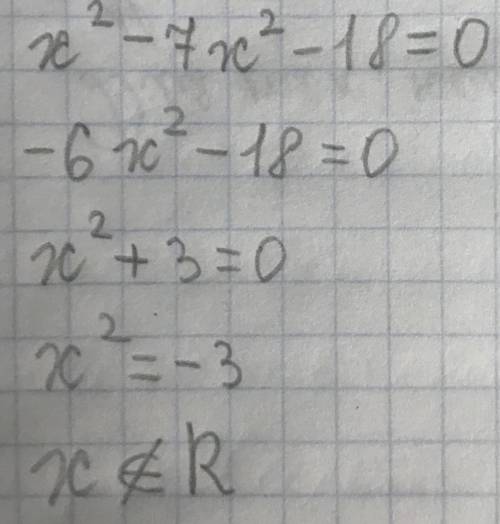 x² - 7x² - 18 = 0
-6x² - 18 = 0
x² + 3 = 0
x² = -3
x ∉ R